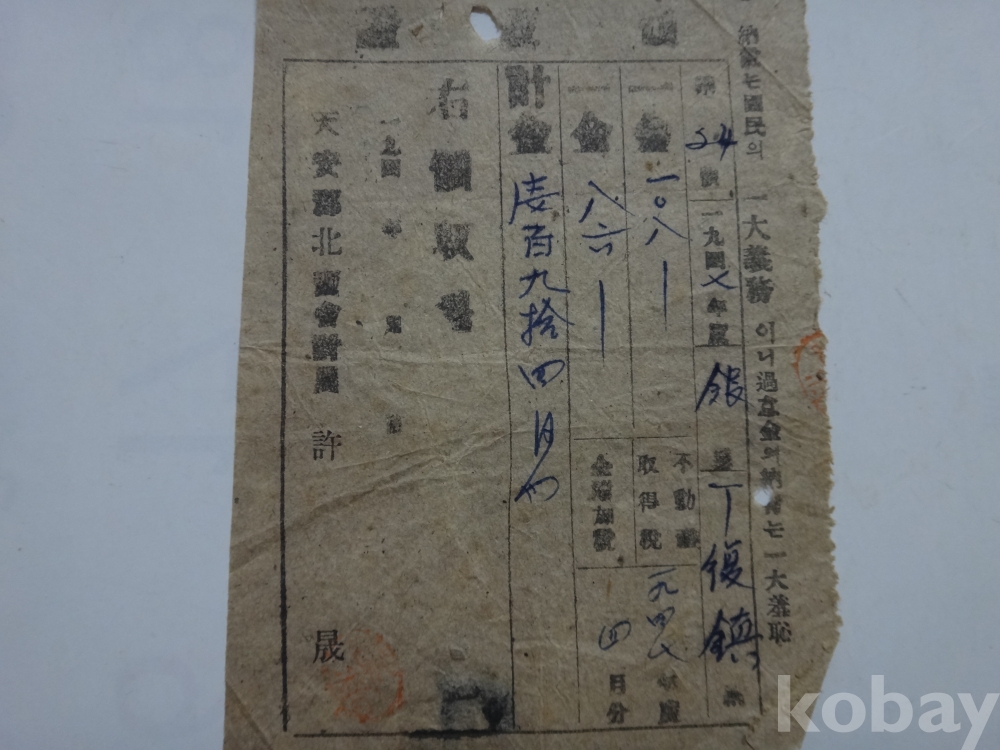 納金는 國民의 一大義務이니 過怠金의 納付는 一大羞恥
第 24 號 一九四七年度 銀 里 丁復鎮
一金 一〇八一 不動産取得稅 一九四七年度
一金 八六一 仝增加稅 四 月分
計金 百九拾四
右領收함
一九四 年 月 日
天安郡北面會計員 許 晟
kobay